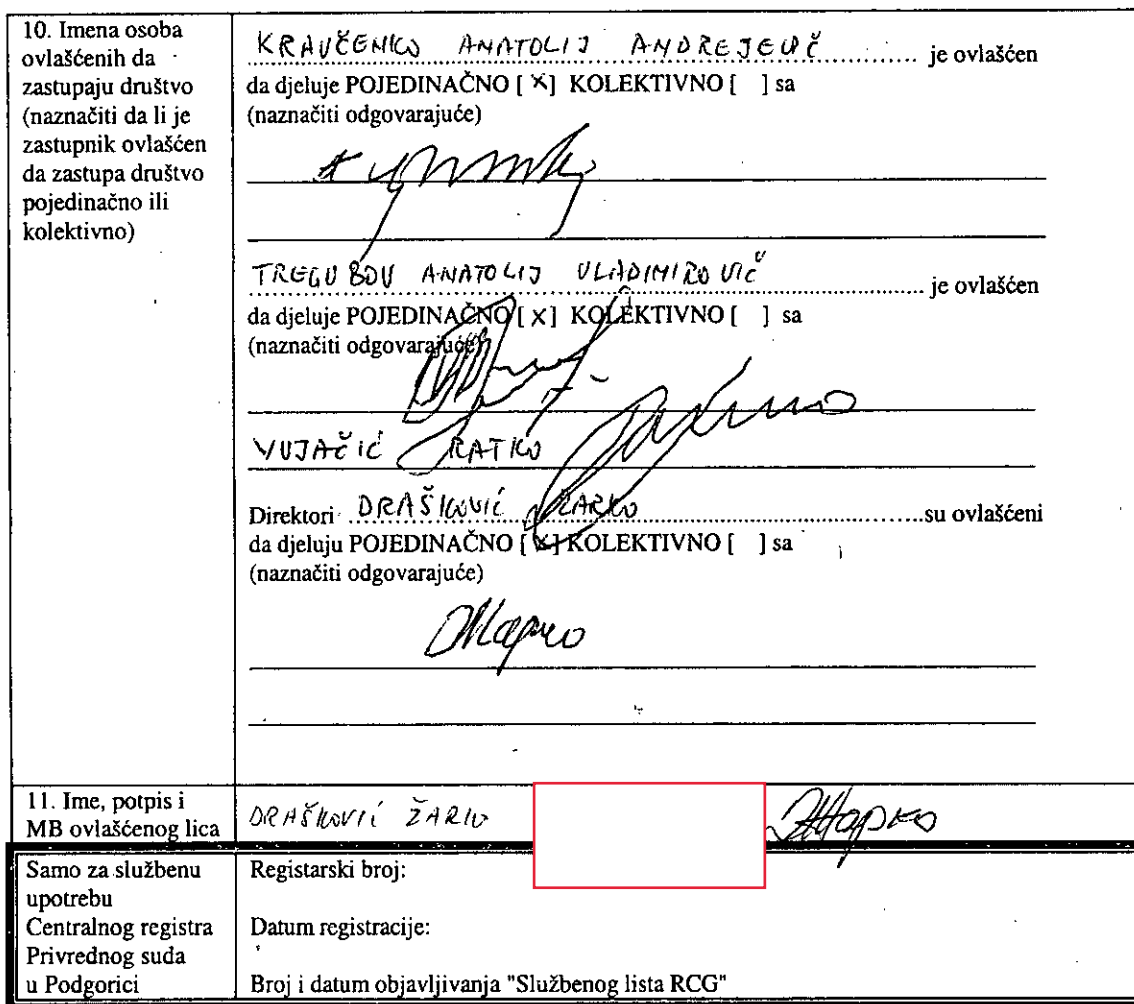 10. Imena osoba
ovlašćenih da
zastupaju društvo
(naznačiti da li je
zastupnik ovlašćen
da zastupa društvo
pojedinačno ili
kolektivno)
KRAVČENKO ANATOLIJ ANDREJEVIČ je ovlašćen
da djeluje POJEDINAČNO [X] KOLEKTIVNO [ ] sa
(naznačiti odgovarajuće)
TREGUBOV ANATOLIJ VLADIMIROVIČ je ovlašćen
da djeluje POJEDINAČNO [X] KOLEKTIVNO [ ] sa
(naznačiti odgovarajuće)
VUJAČIĆ RATKO
Direktori DRAŠKOVIĆ ŽARKO su ovlašćeni
da djeluju POJEDINAČNO [X] KOLEKTIVNO [ ] sa
(naznačiti odgovarajuće)
Жарко
11. Ime, potpis i
MB ovlašćenog lica
DRAŠKOVIĆ ŽARKO
Жарко
Samo za službenu
upotrebu
Centralnog registra
Privrednog suda
u Podgorici
Registarski broj:
Datum registracije:
Broj i datum objavljivanja "Službenog lista RCG"